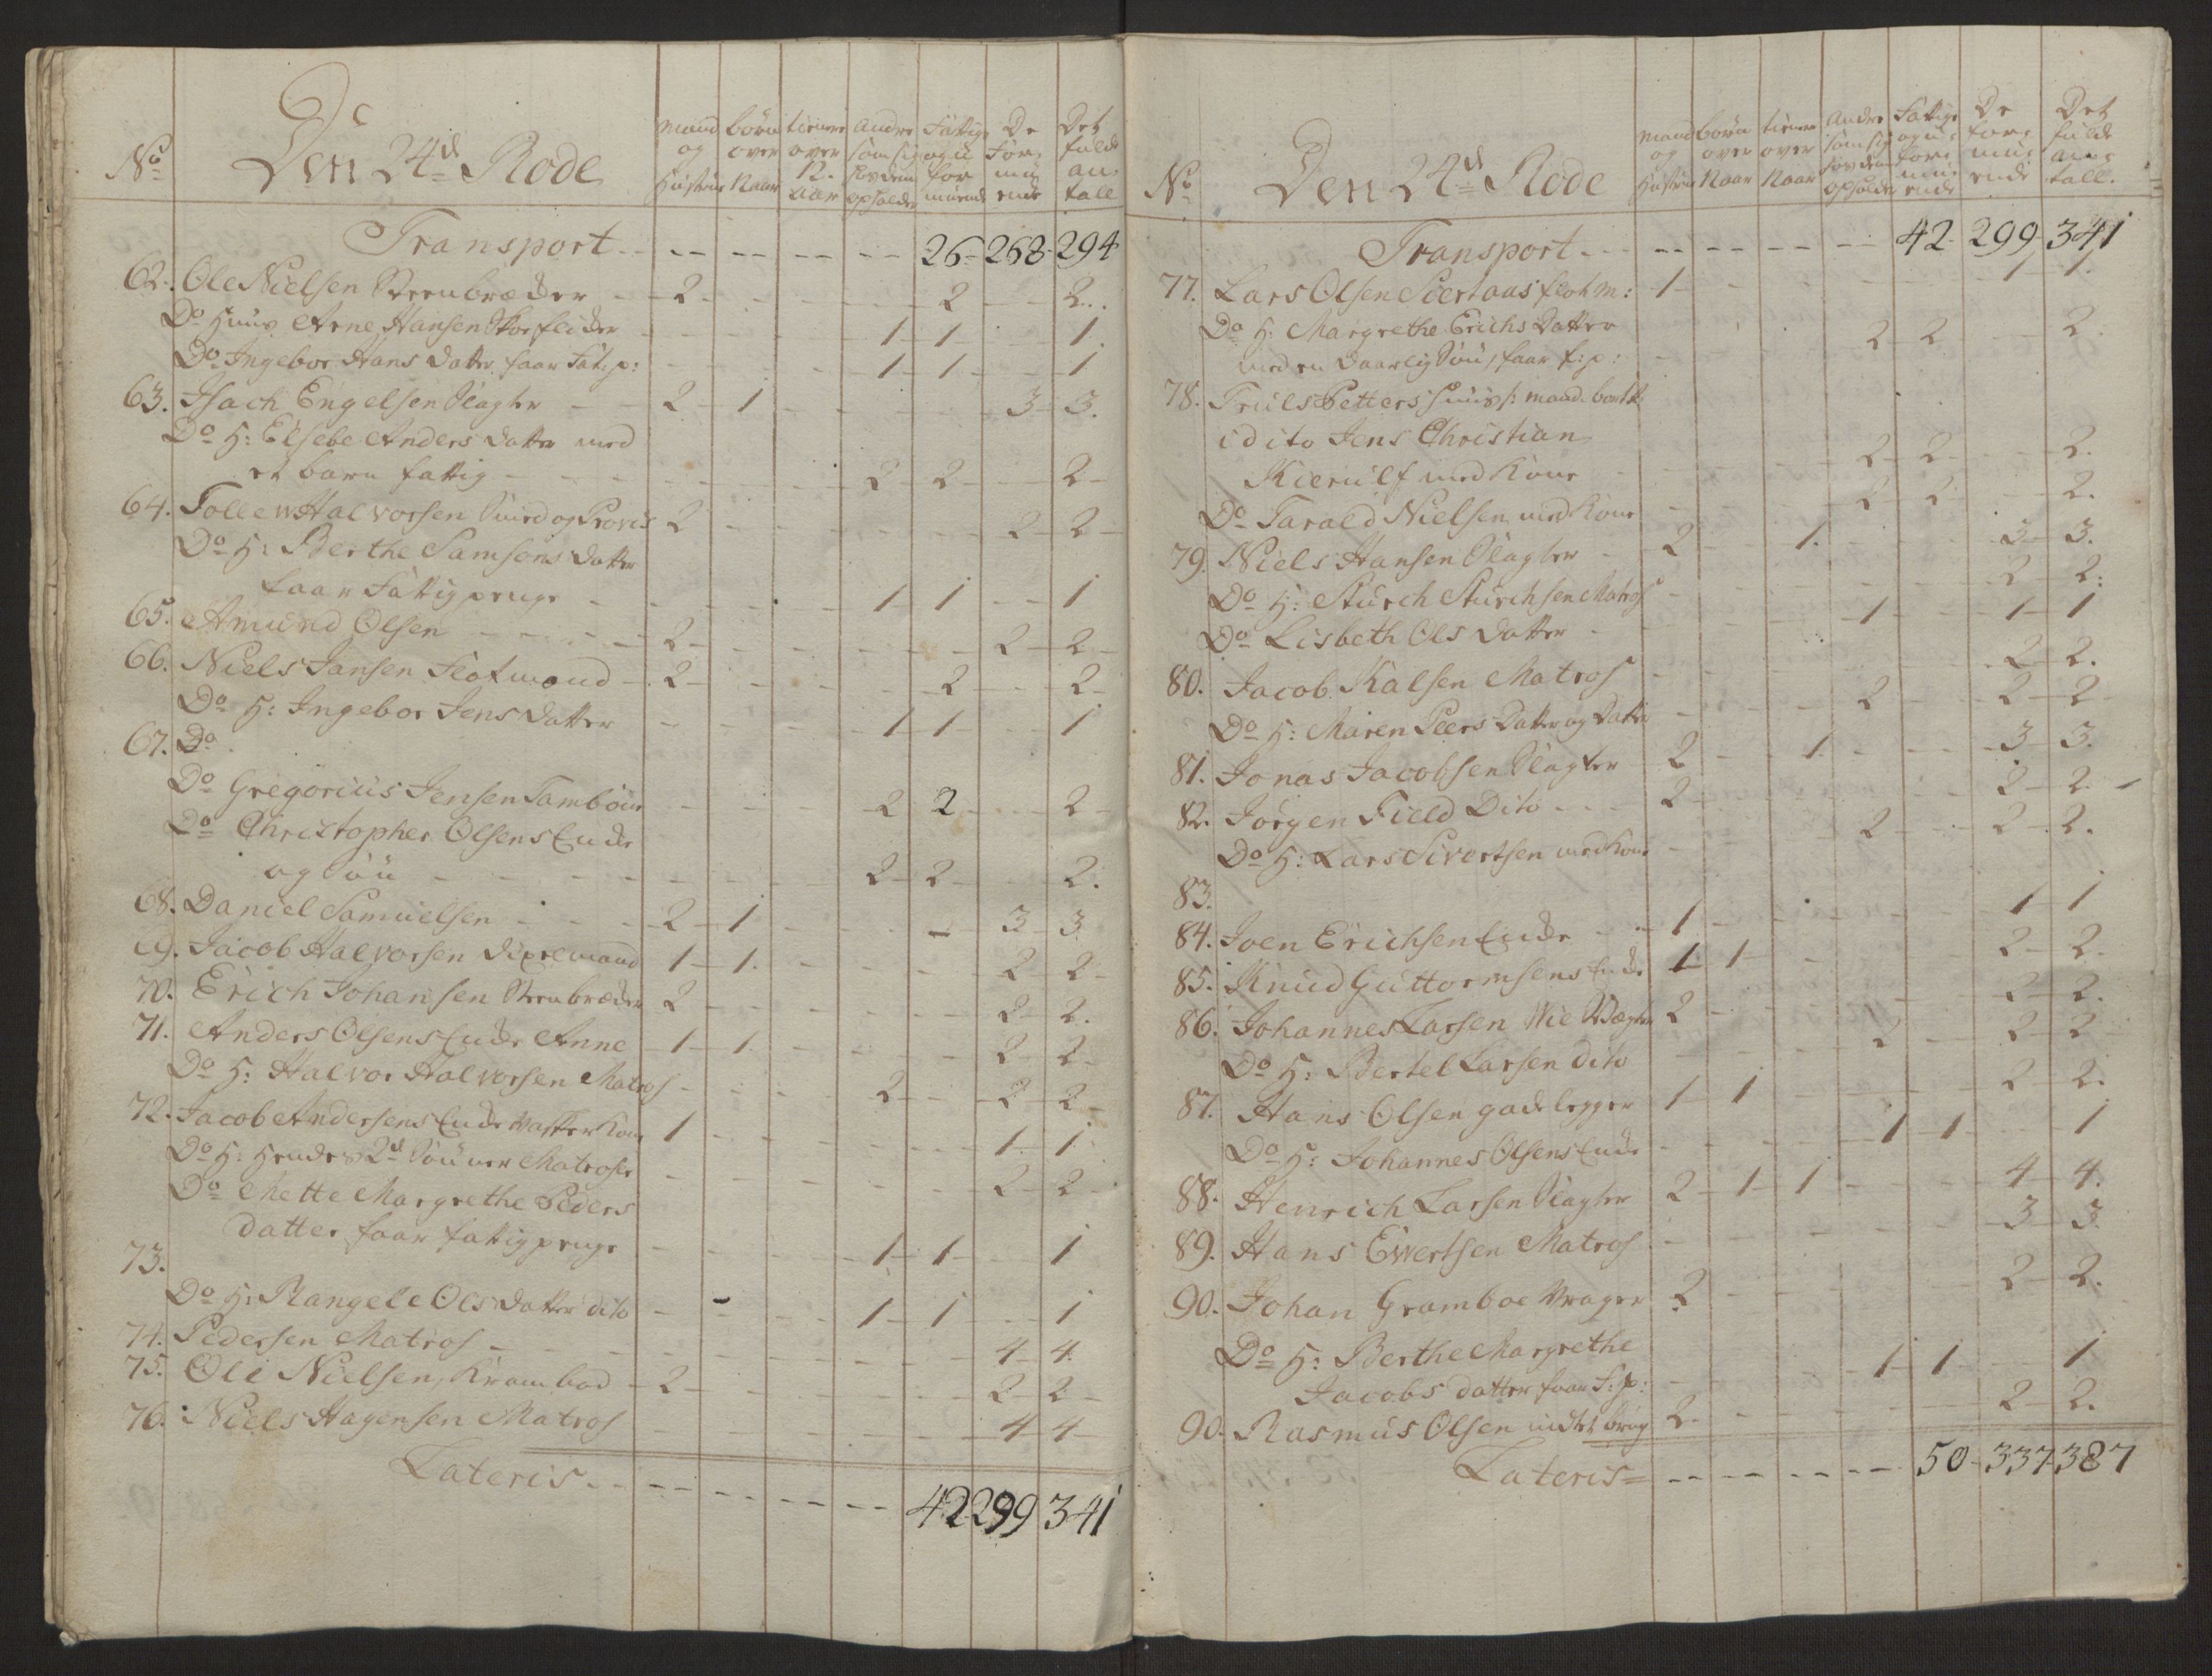 No Den 24d Rode Mand og Hustrue børn over 12 aar tienere over 12. aar Andre som sig hos dem opholder Fattige og u for muende De For mu ende Det fulde an tall
Transport - - - - - 26 - 268 - 294
62. Ole Nielsen Steenbræder - 2 - - - - 2 - - 2
Do Huus Arne Hansen Skoeflicker - - - 1 - 1 - - 1.
Do Ingebor Hans datter faar Fat: p: - - - 1 - 1 - - 1
63. Isach Engelsen Slagter - 2 - 1 - - - - 3 - 3.
Do H: Elsebe Anders datter med
et barn fattig - - - - 2 - 2 - - 2 -
64. Tollew Halvorsen Smed og 2 - - - - - 2 - 2 -
Do H: Berthe Samsons datter
faar Fattig penge - - - - 1 - 1 - - 1
65. Amund Olsen - - - 2 - - - - - 2 - 2 -
66. Niels Jansen Flotmand - 2 - - - - 2 - - 2 -
Do H: Ingebor Jens datter - - - 1 - 1 - - 1
67. Do
Do Gregorius Jensen Tambour - - - 2 2 - - 2 -
Do Christopher Olsens Enke
og Søn - - - - 2 - 2 - - 2.
68. Daniel Samuelsen - - - 2 - 1 - - - 3 - 3
69. Jacob Halvorsen 1 - 1. - - - 2 - 2 -
70. Erich Johansen Steenbræder 2 - - - - 2 - 2.
71. Anders Olsens Enke Anne - 1 - 1. - - - 2 - 2 -
Do H: Halvor Halvorsen Matros - - - 2 - - 2 - 2 -
72. Jacob Andersens Enke Vasker Kone 1 - - - - - 1 - 1.
Do H: Hendes 2d Sønner Matroser - - - - - 2 - 2 -
Do Mette Margrethe Peders
datter faar fattig penge - - - - 1 - 1 - - 1
73.
Do H: Rangele Ols datter dito - - 1 - 1 - - 1
74. Pedersen Matros - - - - - - 4 - 4.
75. Ole Nielsen, Krambod - 2 - - - - - 2 - 2 -
76. Niels Hagensen Matros - - - - - 4 - 4 -
Lateris - - - - - - 42 299 341
No Den 24d Rode Mand og Hustrue børn over 12 aar tiener over 12 aar Andre som sig hos dem opholder Fattige og u formuende De formuende Det fulde antall.
Transport - - - - - 42 - 299 - 341
77. Lars Olsen flotm: - 1 - - - - - 1 - 1.
Do H: Margrethe Erichs Datter
med en daarlig Søn, faar f: p: - - - 2 - 2 - - 2.
78. Truls Petters Huus /: mand bort:/
i dito Jens Christian
Kierulf med Kone - - - - 2 - 2 - - 2.
Do Tarald Nielsen med Kone - - - 2 - 2 - - 2.
79. Niels Hansen Slagter - 2 - - 1. - - - 3 - 3.
Do H: Sturch Sturchsen Matros - - - - - 2 - 2:
Do Lisbeth Ols datter - - - 1 - - 1 - 1
80. Jacob Kalsen Matros - - - - - 2 - 2.
Do H: Maren Peers Datter og Datter - - - 2 - - 2 - 2
81. Jonas Jacobsen Slagter 2 - - 1. - - - 3 - 3.
82. Jørgen Field Dito - - - 2 - - - - 2 - 2. -
Do H: Lars Sivertsen med Kone - - - 2 - - 2 - 2.
83.
84. Joen Erichsen Enke - - 1 - - - - - 1 - 1
85. Knud Guttormsens Enke 1 - 1 - - - - 2 - 2.
86. Johannes Larsen Wie Vægter 2 - - - - - 2 - 2.
Do H: Bertel Larsen dito - - - 2 - - 2 - 2
87. Hans Olsen gadelegger 1 - 1 - - - - 2 - 2.
Do H: Johannes Olsens Enke - - - 1 - 1 - - 1
88. Henrich Larsen Slagter 2 - 1 - 1 - - - 4 - 4.
89. Hans Ewertsen Matros - - - - - 3 - 3
90. Johan Gramboe Vrager 2 - - - - - 2 - 2.
Do H: Berthe Margrethe
Jacobs datter faar f: p: - - - 1 - 1 - - 1
90. Rasmus Olsen 2 - - - - - 2 - 2.
Lateris = - - - - - 50 - 337 - 387